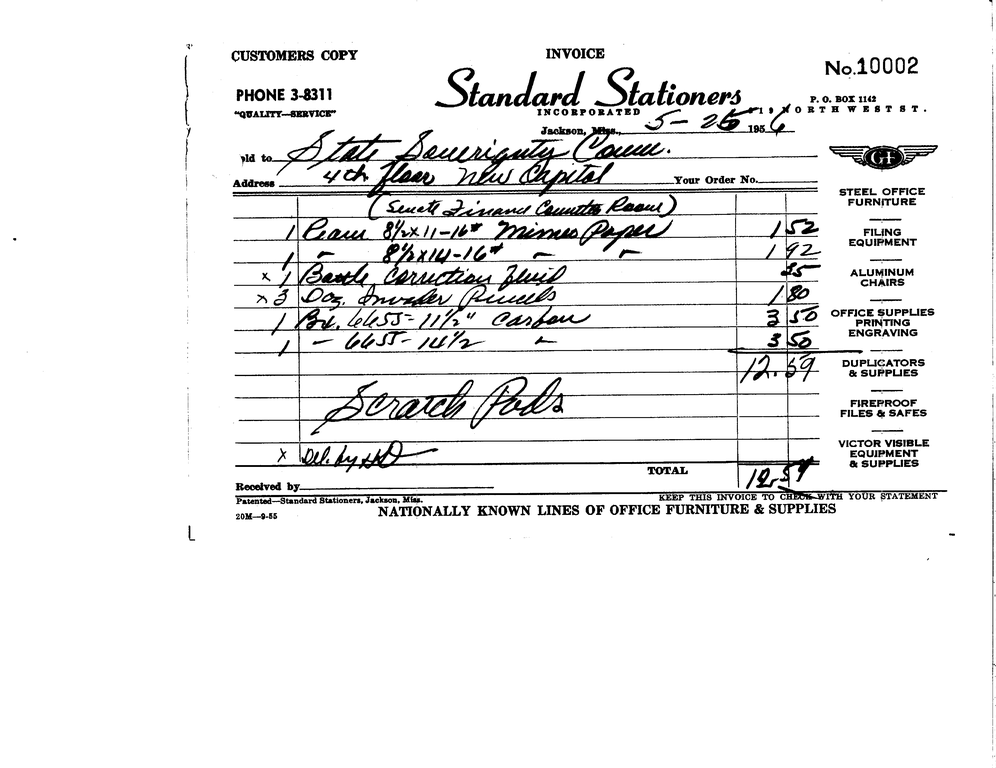 CUSTOMERS COPY
INVOICE
No.10002
PHONE 3-8311
"QUALITY—SERVICE"
Standard Stationers
INCORPORATED
P. O. BOX 1142
NORTH WEST ST.
Jackson, Miss., 5-25 1956
ld to State Soveriguty Comm.
Address 4th floor New Capitol
Your Order No.
(Senate Finance Room)
1 Ream 8½x11-16# Mimeo Paper 1 52
1 " 8½x14-16# " " 1 92
x 1 Bottle Correction fluid 35
x 3 Doz. Invader Pencils 1 80
1 Bx. 6655-11½" Carbon 3 50
1 " 6655-14½ " 3 50
12.59
Scratch Pads
x Del. by
TOTAL 12.59
Received by
Patented—Standard Stationers, Jackson, Miss.
KEEP THIS INVOICE TO CHECK WITH YOUR STATEMENT
20M—9-55
NATIONALLY KNOWN LINES OF OFFICE FURNITURE & SUPPLIES
GF
STEEL OFFICE
FURNITURE
FILING
EQUIPMENT
ALUMINUM
CHAIRS
OFFICE SUPPLIES
PRINTING
ENGRAVING
DUPLICATORS
& SUPPLIES
FIREPROOF
FILES & SAFES
VICTOR VISIBLE
EQUIPMENT
& SUPPLIES